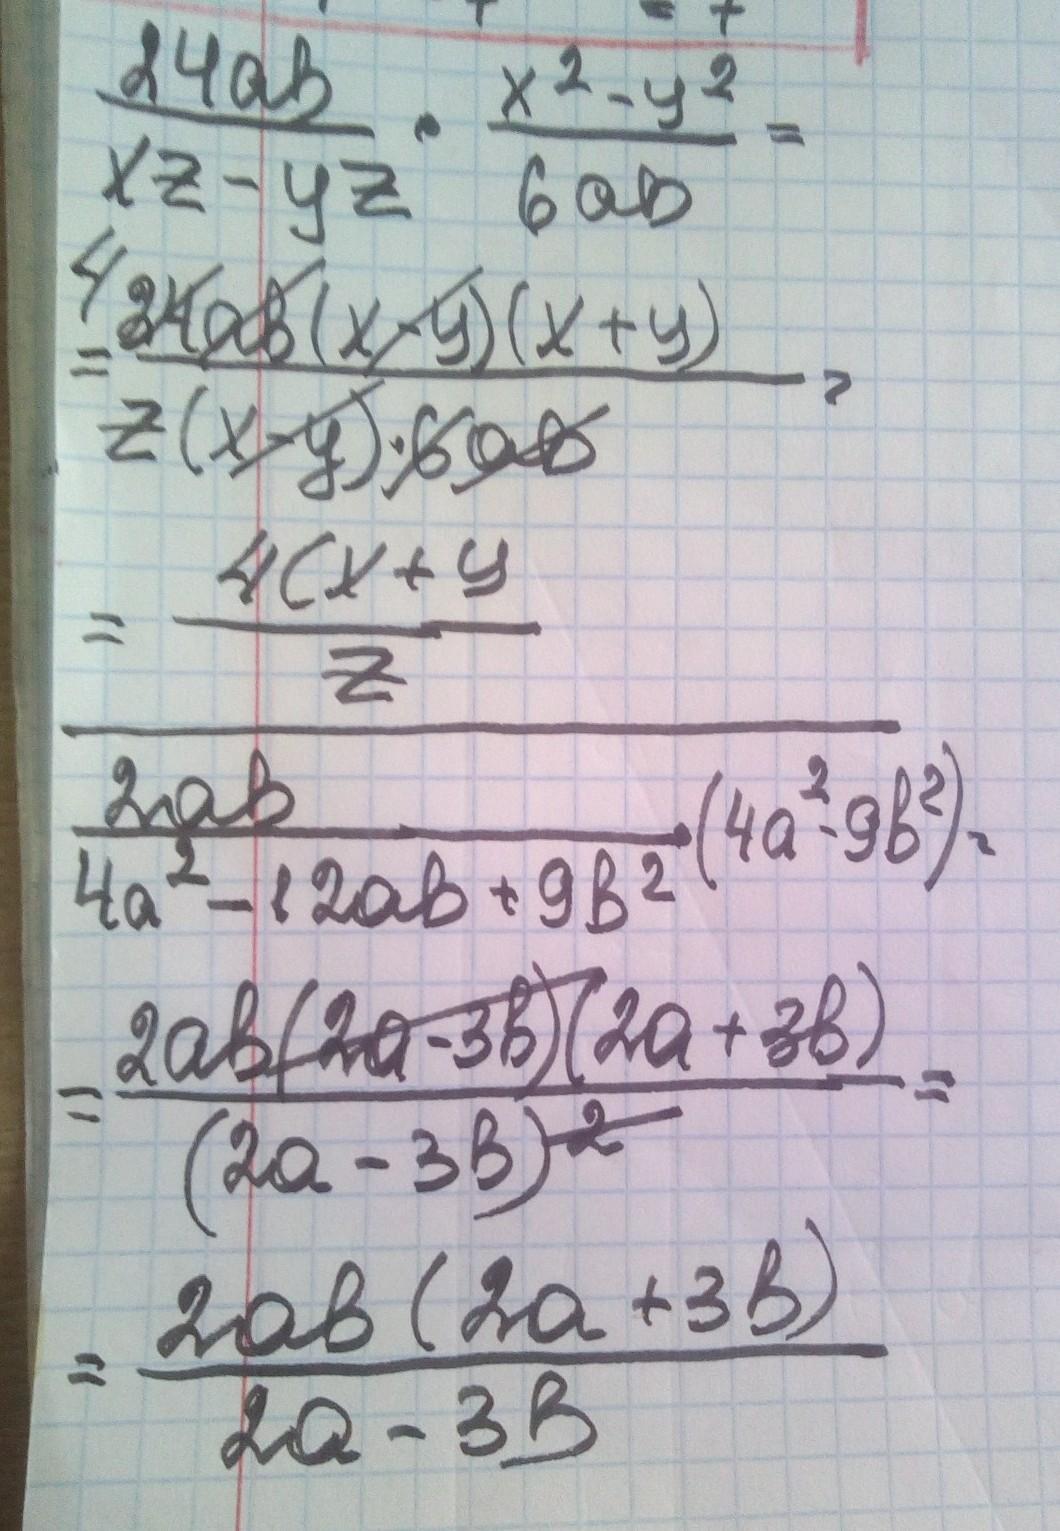 24ab / (xz - yz) · (x² - y²) / 6ab =
= 4 24ab(x-y)(x+y) / z(x-y)·6ab =
= 4(x+y / z
2ab / (4a² - 12ab + 9b²) · (4a² - 9b²) =
= 2ab(2a-3b)(2a+3b) / (2a-3b)² =
= 2ab(2a+3b) / 2a-3b